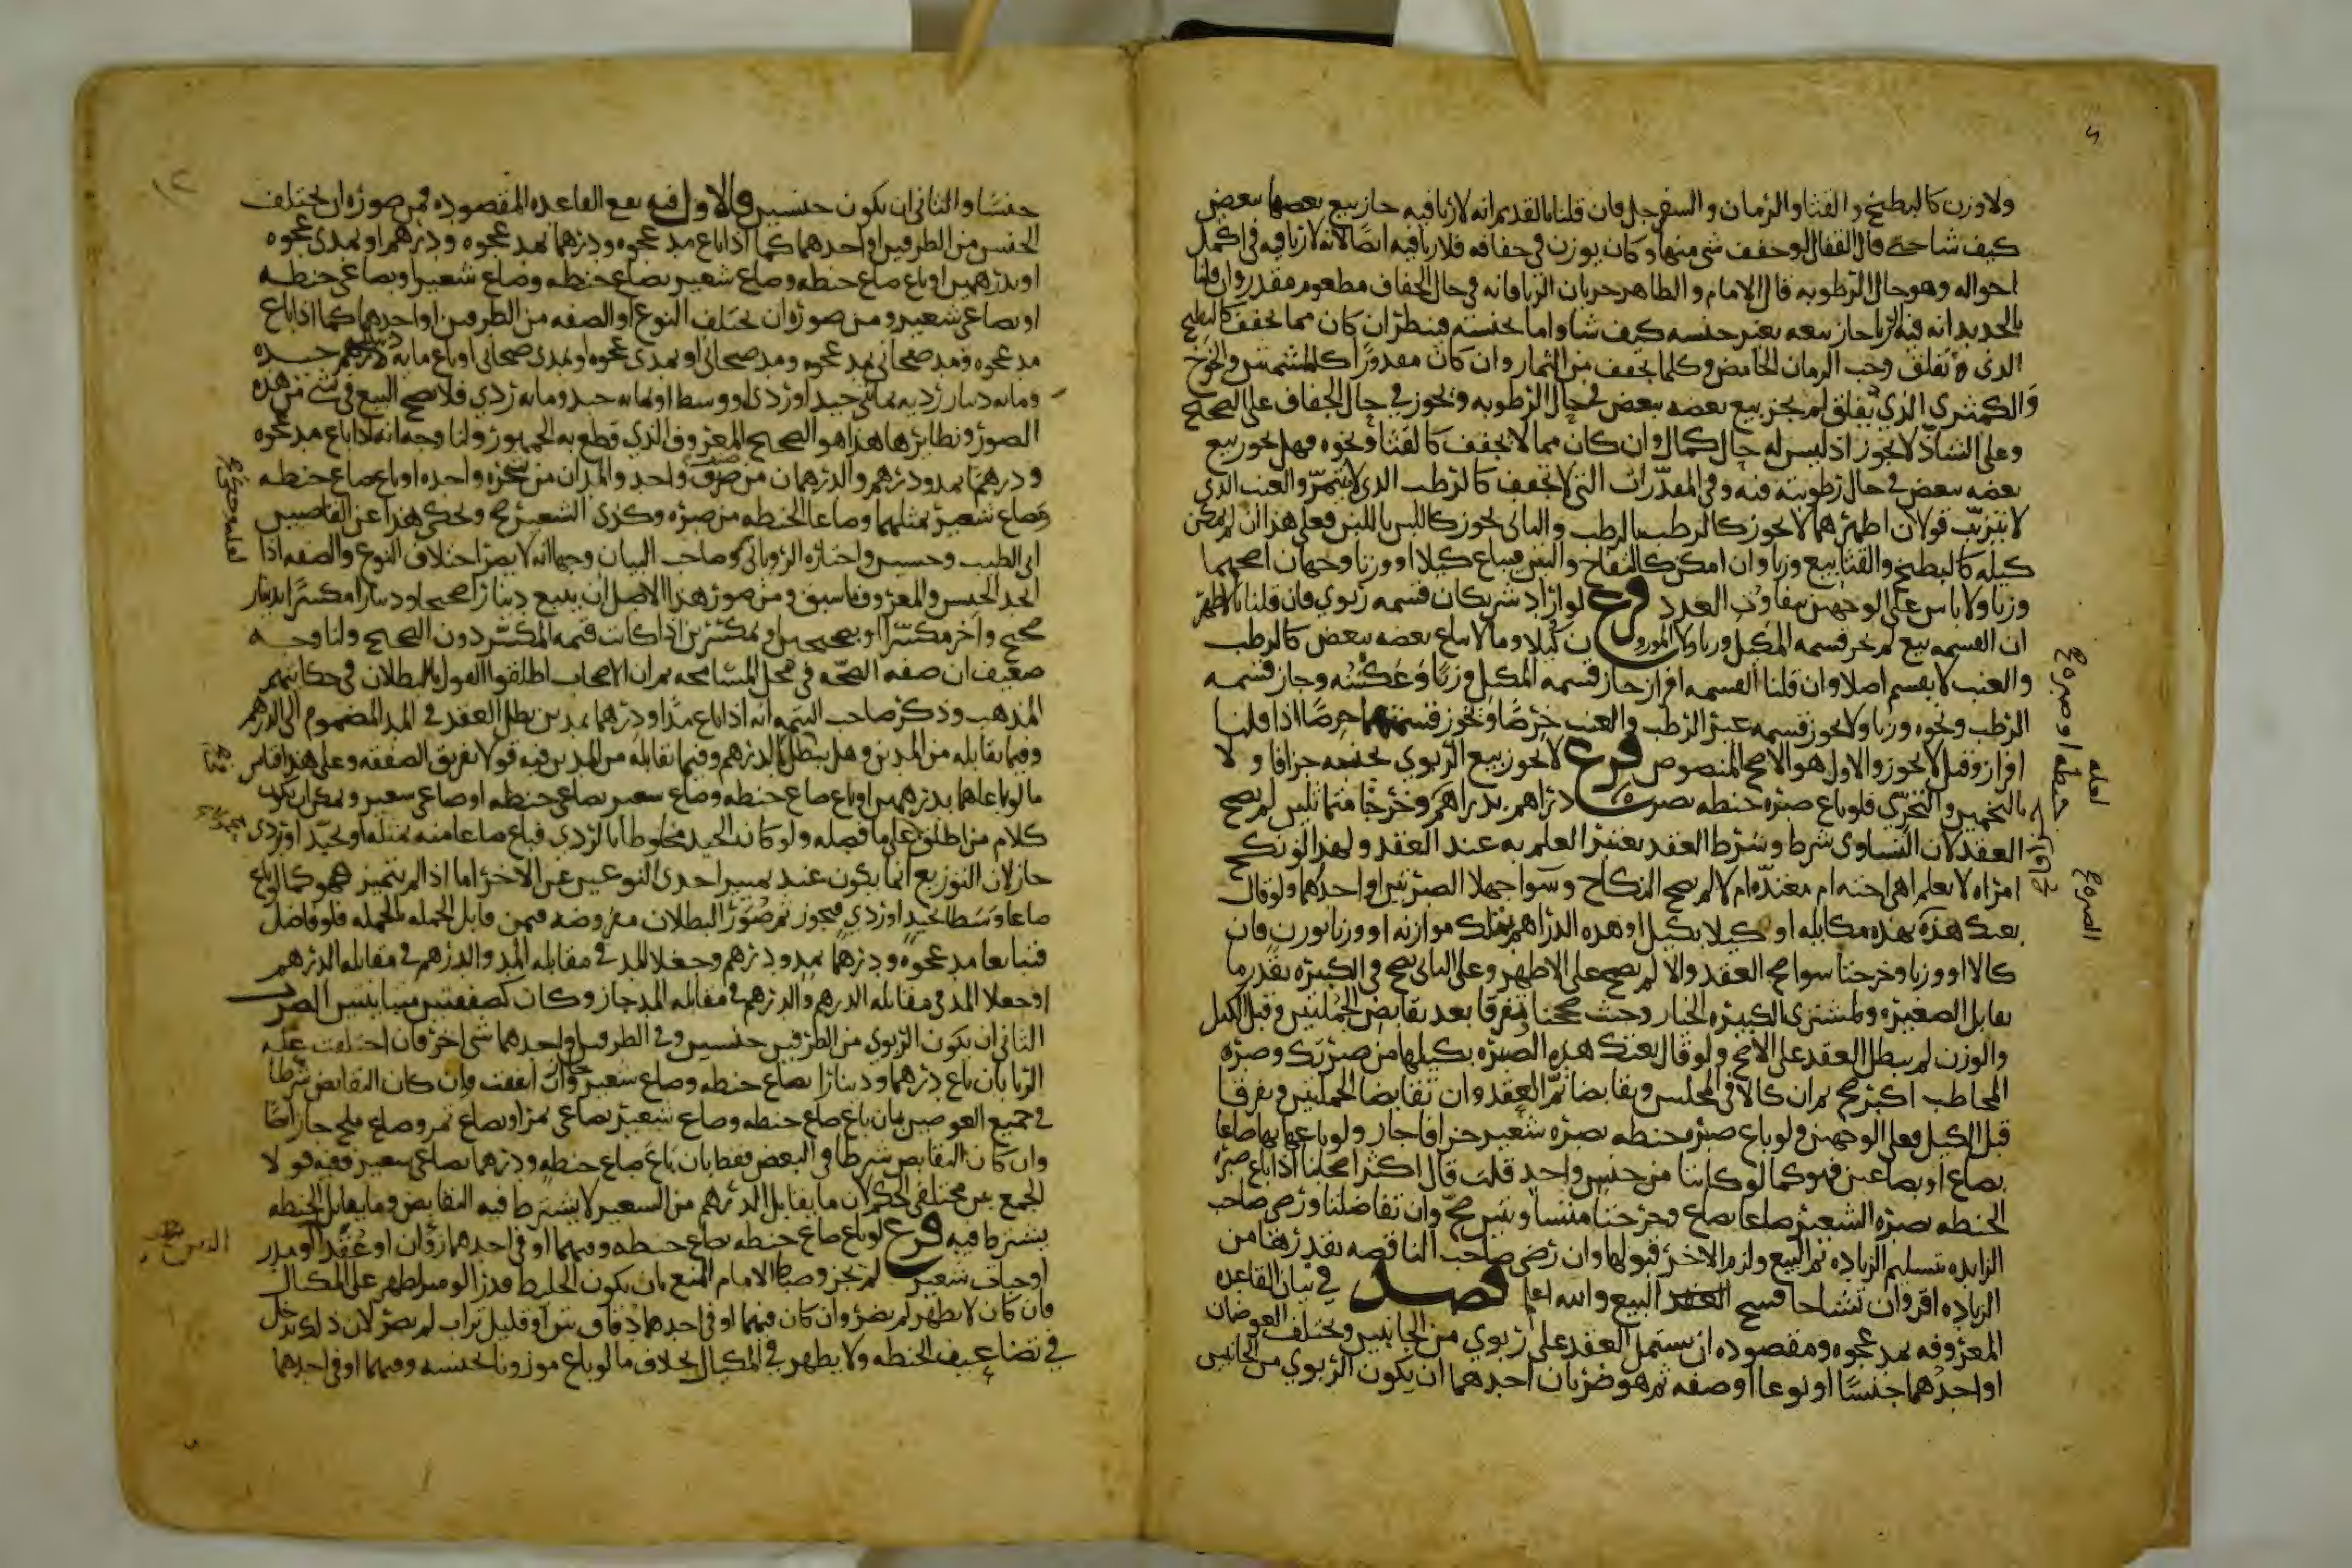 ولا وزن كالبطيخ والقثا والرمان والسفرجل فان قلنا بالقديم انه لا ربا فيه جاز بيع بعضها ببعض
كيف شا حتى قال القفال لو جفف شي منها وكان يوزن في جفافه فلا ربا فيه ايضا لانه لا ربا فيه في اكمل
احواله وهو حال الرطوبه قال الامام والظاهر جريان الربا فانه في حال الجفاف مطعوم مقدر وان قلنا
بالجديد انه فيه الربا جاز بيعه بغير جنسه كيف شا واما بجنسه فينظر ان كان مما يجفف كالبطيخ
الذي يفلق وحب الرمان الحامض وكلما يجفف من الثمار وان كان مقدرا كالمشمش والخوخ
والكمثرى الذي يفلق لم يجز بيع بعضه ببعض في حال الرطوبه ويجوز في حال الجفاف على الصحيح
وعلى الشاذ لا يجوز اذ ليس له حال كمال وان كان مما لا يجفف كالقثا ونحوه فهل يجوز بيع
بعضه ببعض في حال رطوبته فيه وفي المقدرات التي لا تجفف كالرطب الذي لا يتتمر والعنب الذي
لا يتزبب قولان اظهرهما لا يجوز كالرطب بالرطب والثاني يجوز كاللبن باللبن فعلى هذا ان لم يمكن
كيله كالبطيخ والقثا بيع وزنا وان امكن كالتفاح والتين فيباع كيلا او وزنا وجهان اصحهما
وزنا ولا باس على الوجهين بتفاوت العدد فرع لو اراد شريكان قسمه ربوي فان قلنا بالاظهر
ان القسمه بيع لم يجز قسمه المكيل وزنا ولا الموزون كيلا وما لا يباع بعضه ببعض كالرطب
والعنب لا يقسم اصلا وان قلنا القسمه افراز جاز قسمه المكيل وزنا وعكسه وجاز قسمه
الرطب ونحوه وزنا ولا يجوز قسمه غير الرطب والعنب خرصا ويجوز قسمتهما خرصا اذا قلنا
افراز وقيل لا يجوز والاول هو الاصح المنصوص فرع لا يجوز بيع الربوي بجنسه جزافا ولا
بالتخمين والتحري فلو باع صبره حنطه بصبره دراهم بدراهم وخرجتا متماثلين لم يصح
العقد لان التساوي شرط وشرط العقد يعتبر العلم به عند العقد ولهذا لو نكح
امراه لا يعلم اهي اخته ام معتده ام لا لم يصح النكاح وسوا جهلا الصبرتين او احدهما ولو قال
بعتك هذه بهذه مكايله او كيلا بكيل او هذه الدراهم بتلك موازنه او وزنا بوزن فان
كالا او وزنا وخرجتا سوا صح العقد والا لم يصح على الاظهر وعلى الثاني يصح في الكبيره بقدر ما
يقابل الصغيره ولمشتري الكبيره الخيار وحيث صححنا فتفرقا بعد تقابض الجملتين وقبل الكيل
والوزن لم يبطل العقد على الاصح ولو قال بعتك هذه الصبره بكيلها من صبرتك وصبره
المخاطب اكبر صح ثم ان كالا في المجلس وتقابضا تم العقد وان تقابضا الجملتين وتفرقا
قبل الكيل فعلى الوجهين ولو باع صبره حنطه بصبره شعير جزافا جاز ولو باعها بها صاعا
بصاع او بصاعين فهو كما لو كانتا من جنس واحد قلت قال اكثر اصحابنا اذا باع صبره
الحنطه بصبره الشعير صاعا بصاع وخرجتا متساويتين صح وان تفاضلتا ورضي صاحب
الزايده بتسليم الزياده تم البيع ولزم الاخر قبولها وان رضي صاحب الناقصه بقدرها من
الزياده اقر وان تشاحا فسخ العقد البيع والله اعلم فصل في بيان القاعده
المعروفه بمد عجوه ومقصوده ان يشتمل العقد على ربوي من الجانبين ويختلف العوضان
او احدهما جنسا او نوعا او صفه ثم هو ضربان احدهما ان يكون الربوي من الجانبين
جنسا والثاني ان يكون جنسين فالاول فيه تقع القاعده المقصوده فمن صوره ان يختلف
الجنس من الطرفين او احدهما كما اذا باع مد عجوه ودرهما بمد عجوه ودرهم او بمدي عجوه
او بدرهمين او باع صاع حنطه وصاع شعير بصاع حنطه وصاع شعير او بصاعي حنطه
او بصاعي شعير ومن صوره ان يختلف النوع او الصفه من الطرفين او احدهما كما اذا باع
مد عجوه ومد صيحاني بمد عجوه ومد صيحاني او بمدي عجوه او بمدي صيحاني او باع مايه جيده
ومايه دينار رديه بمايتي جيد او ردي او وسط او بمايه جيد ومايه ردي فلا يصح البيع في شي من هذه
الصور ونظايرها هذا هو الصحيح المعروف الذي قطع به الجمهور ولنا وجه انه اذا باع مد عجوه
ودرهما بمد ودرهم والدرهمان من ضرب واحد والمدان من شجره واحده او باع صاع حنطه
وصاع شعير بمثلهما وصاعا الحنطه من صبره وكذي الشعير صح ويحكى هذا عن القاضيين
ابي الطيب وحسين واختاره الروياني وصاحب البيان وجها انه لا يضر اختلاف النوع والصفه اذا
اتحد الجنس والمعروف ما سبق ومن صور هذا الاصل ان يبيع دينارا صحيحا ودينارا مكسرا بدينار
صحيح واخر مكسر او بصحيحين او بمكسرين اذا كانت قيمه المكسر دون الصحيح ولنا وجه
ضعيف ان صفه الصحه في محل المسامحه ثم ان الاصحاب اطلقوا القول بالبطلان في حكايتهم
المذهب وذكر صاحب التتمه انه اذا باع مدا ودرهما بمدين بطل العقد في المد المضموم الى الدرهم
وفيما يقابله من المدين وهل يبطل في الدرهم وفيما يقابله من المدين فيه قولا تفريق الصفقه وعلى هذا قياس
ما لو باعهما بدرهمين او باع صاع حنطه وصاع شعير بصاعي حنطه او صاعي شعير ويمكن ان يكون
كلام من اطلق على ما فصله ولو كان الجيد مخلوطا بالردي فباع صاعا منه بمثله او بجيد او ردي
جاز لان التوزيع انما يكون عند تمييز احدى النوعين عن الاخر اما اذا لم يتميز فهو كما لو باع
صاعا وسطا بجيد او ردي فيجوز ثم صور البطلان مفروضه فيمن قابل الجمله بالجمله فلو فاضل
فتبايعا مد عجوه ودرهما بمد ودرهم وجعلا المد في مقابله المد والدرهم في مقابله الدرهم
او جعلا المد في مقابله الدرهم والدرهم في مقابله المد جاز وكان كصفقتين متباينتين الضرب
الثاني ان يكون الربوي من الطرفين جنسين وفي الطرفين او احدهما شي اخر فان اختلفت عله
الربا بان باع درهما ودينارا بصاع حنطه وصاع شعير جاز وان اتفقت فان كان التقابض شرطا
في جميع العوضين بان باع صاع حنطه وصاع شعير بصاعي تمر او بصاع تمر وصاع ملح جاز ايضا
وان كان التقابض شرطا في البعض فقط بان باع صاع حنطه ودرهما بصاعي شعير ففيه قولا
الجمع بين مختلفي الحكم لان ما يقابل الدرهم من الشعير لا يشترط فيه التقابض وما يقابل الحنطه
يشترط فيه فرع لو باع صاع حنطه بصاع حنطه وفيهما او في احدهما زوان او عقد او مدر
او حبات شعير لم يجز وضبط الامام المنع بان يكون الخليط قدرا لو ميز لظهر على المكيال
فان كان لا يظهر لم يضر وان كان فيهما او في احدهما دقاق تبن او قليل تراب لم يضر لان ذلك يدخل
في تضاعيف الحنطه ولا يظهر في المكيال بخلاف ما لو باع موزونا بجنسه وفيهما او في احدهما